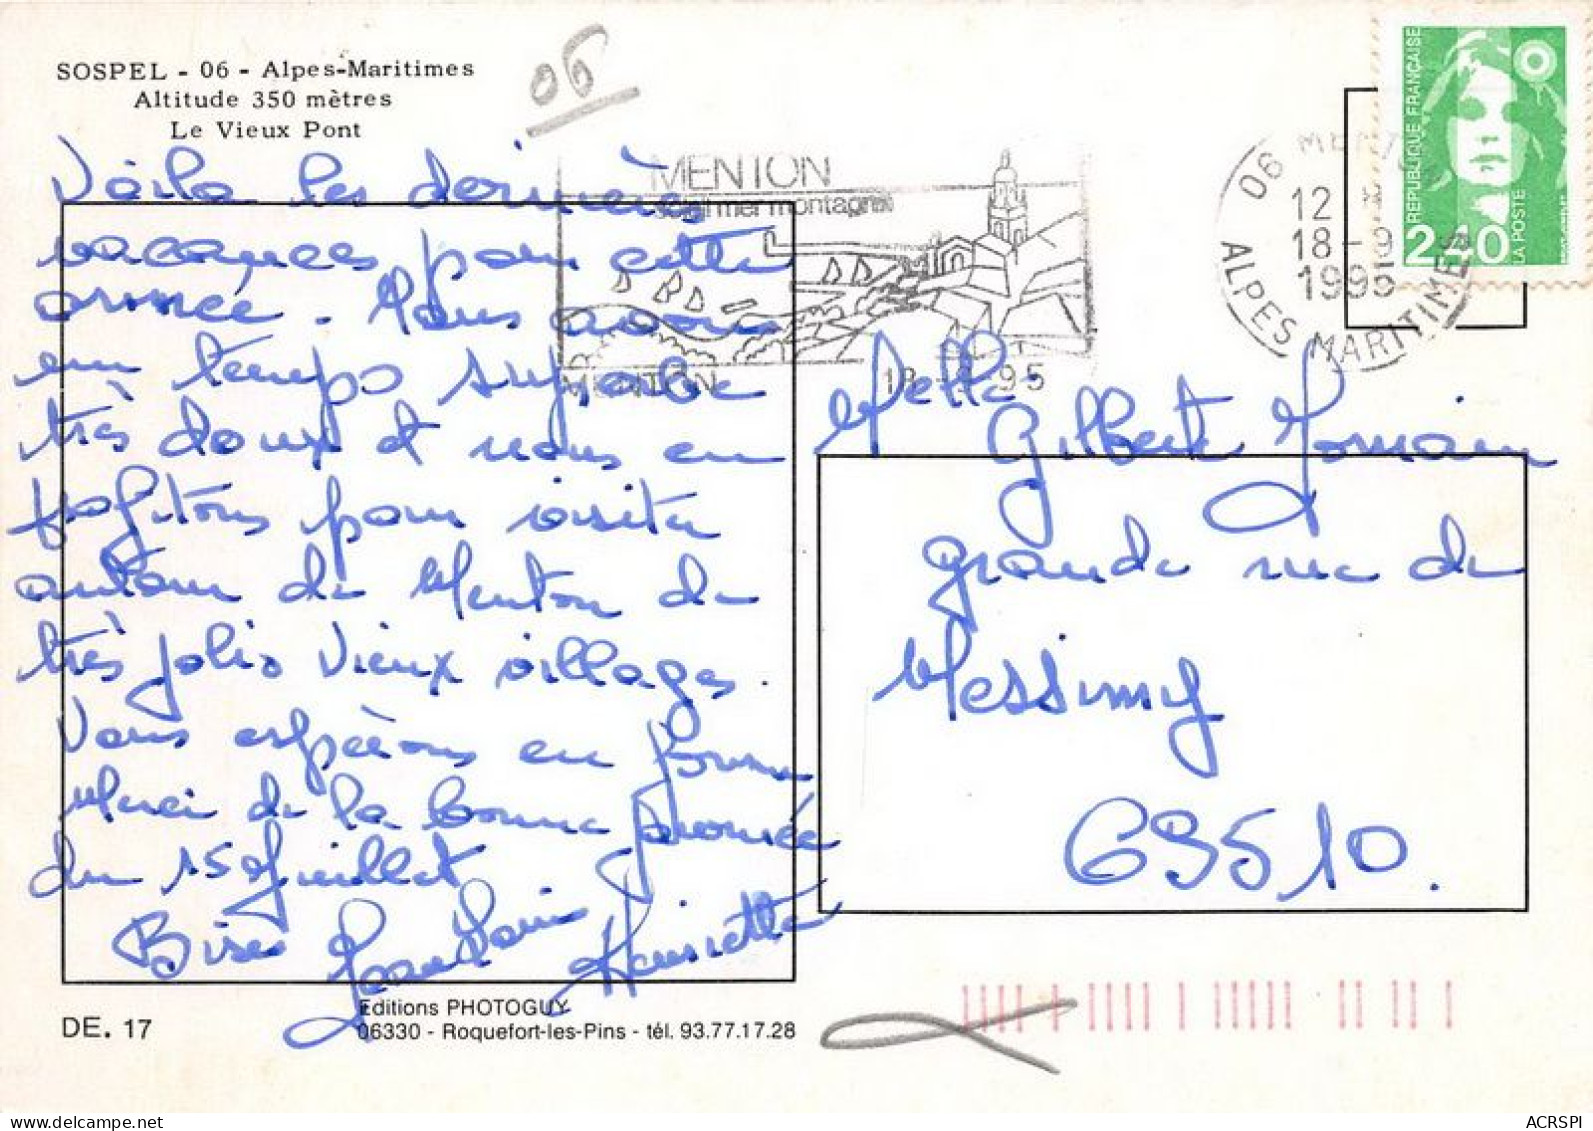 SOSPEL - 06 - Alpes-Maritimes
Altitude 350 mètres
Le Vieux Pont
06
Voila les dernières
vacances pour cette
année. Nous avons
un temps superbe
très doux et nous en
profitons pour visiter
autour de Menton de
très jolis vieux villages.
Vous espérons en forme
Merci de la bonne journée
du 15 Juillet
Bises
Henriette
DE. 17
Editions PHOTOGUY
06330 - Roquefort-les-Pins - tél. 93.77.17.28
MENTON
soleil mer montagne
MENTON
18-9-95
06 MENTON
12 H
18-9
1995
ALPES MARITIMES
REPUBLIQUE FRANÇAISE
2,40
LA POSTE
Gilbert
grande rue de
Messimy
69510.
ACRSPI